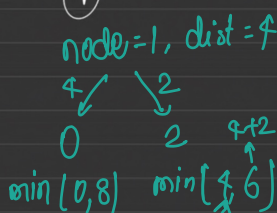 node=1, dist=4
4 2
0 2 4+2
min(0,8) min(4,6)